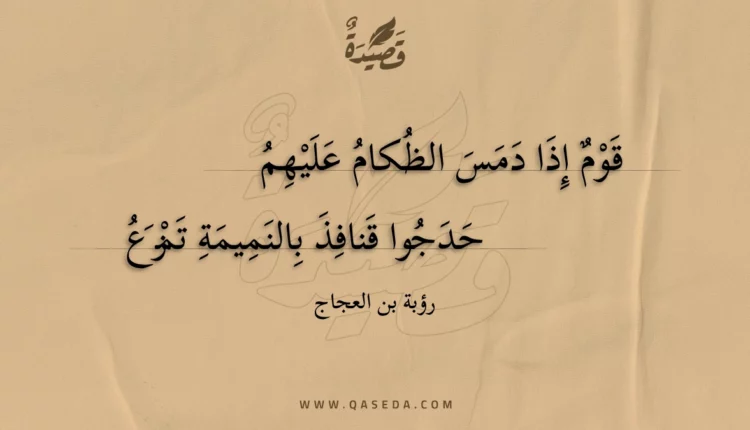 قَصِيدَةٌ
قَوْمٌ إِذَا دَمَسَ الظُكامُ عَلَيْهِمُ
حَدَجُوا قَنافِذَ بِالنَمِيمَةِ تَمْزَعُ
رؤبة بن العجاج
WWW.QASEDA.COM